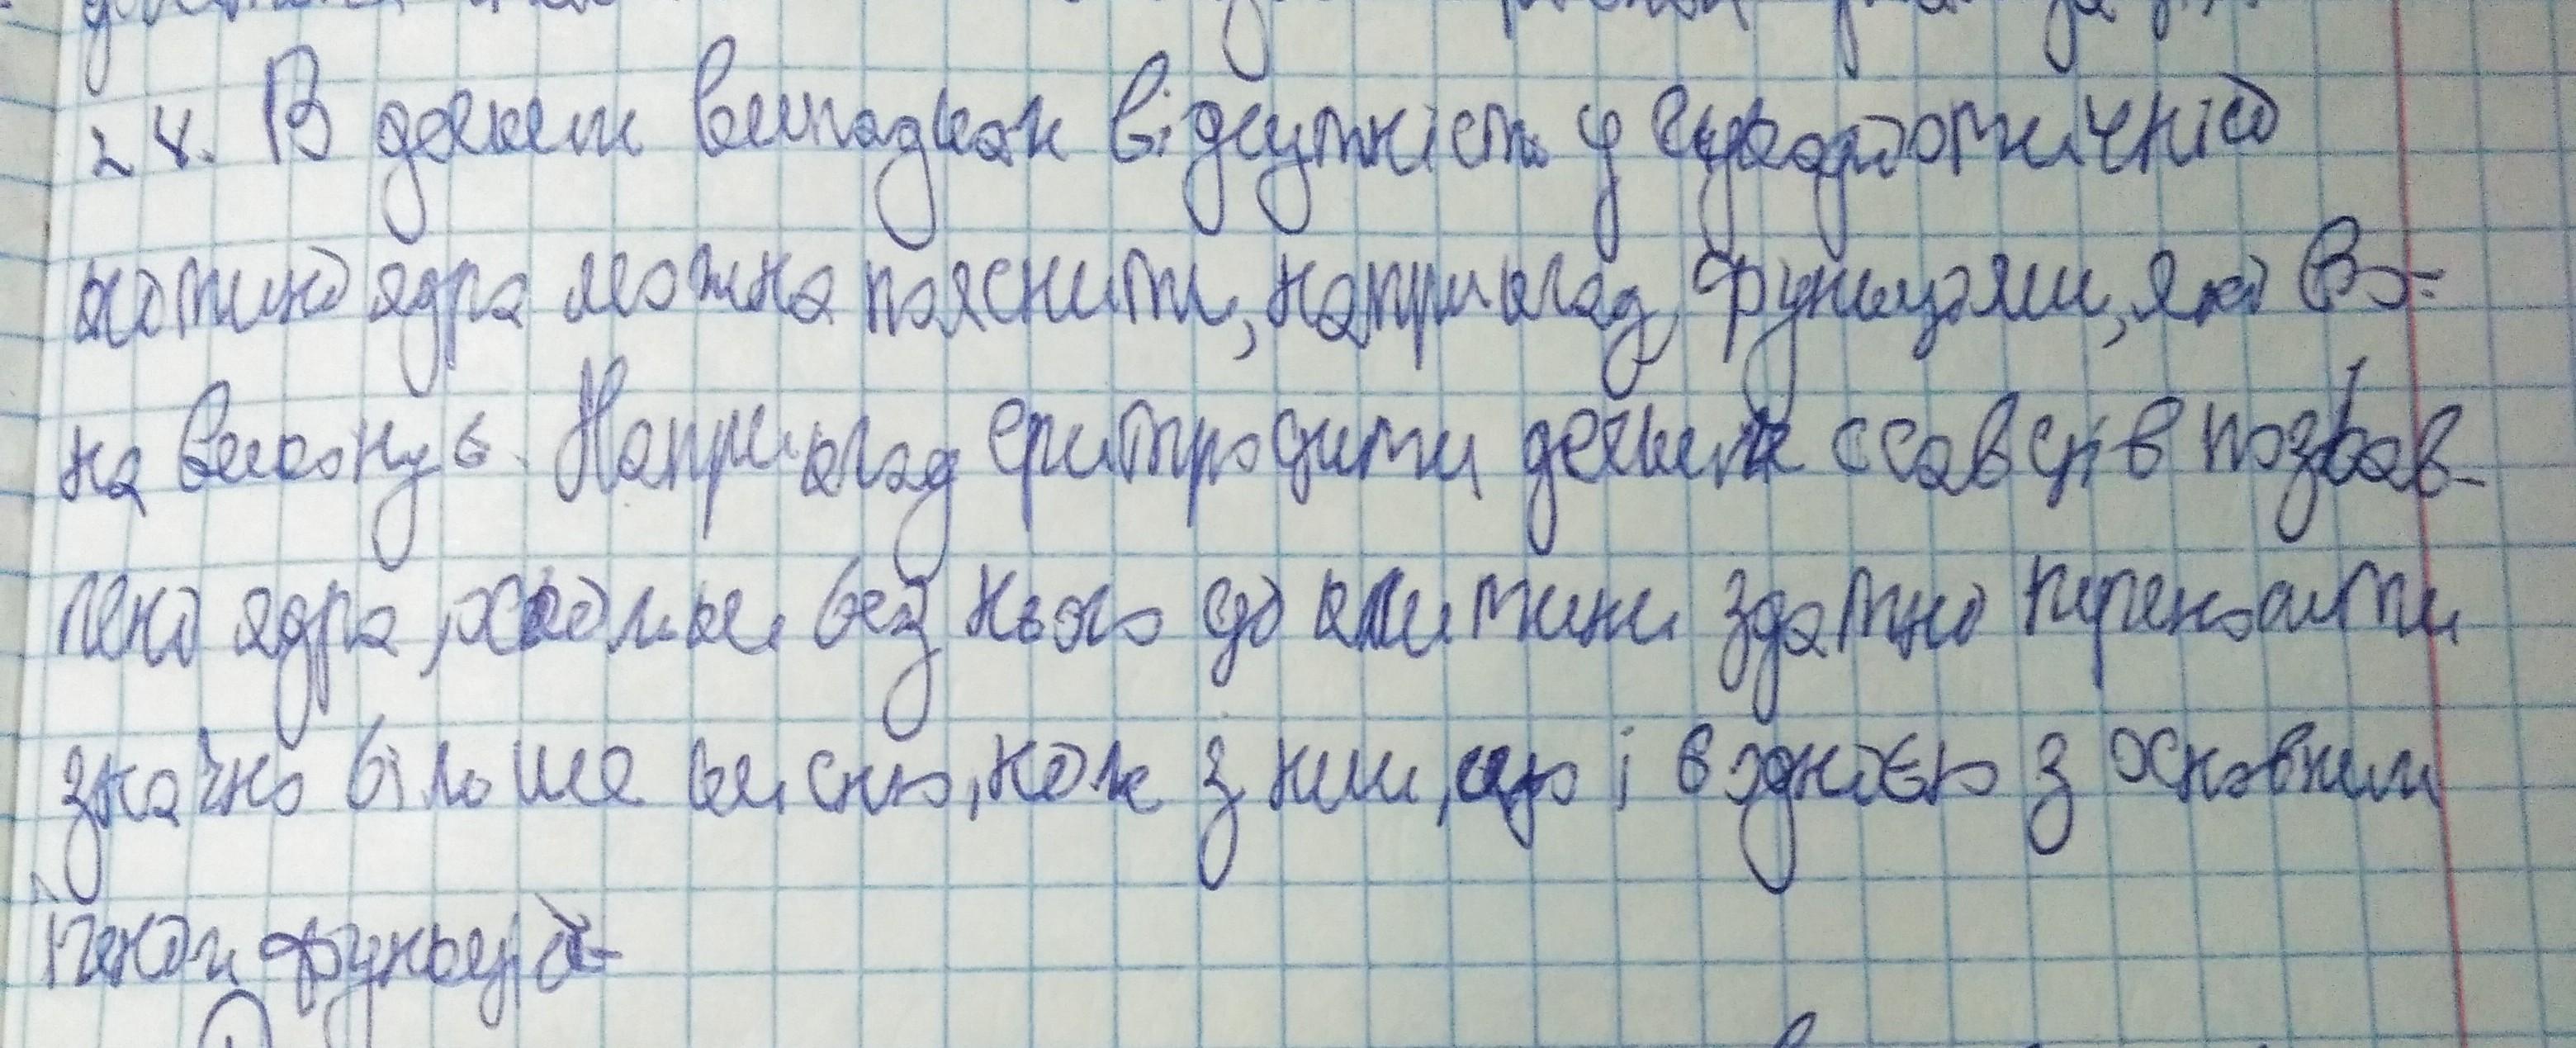 24. В деяких випадках відсутність у еукаріотичній
клітині ядра можна пояснити, наприклад, функціями, які во-
на виконує. Наприклад еритроцити деяких ссавців позбав-
лені ядра, оскільки без нього ці клітини здатні переносити
значно більше кисню, ніж з ним, що і є однією з основним
їхній функцій.